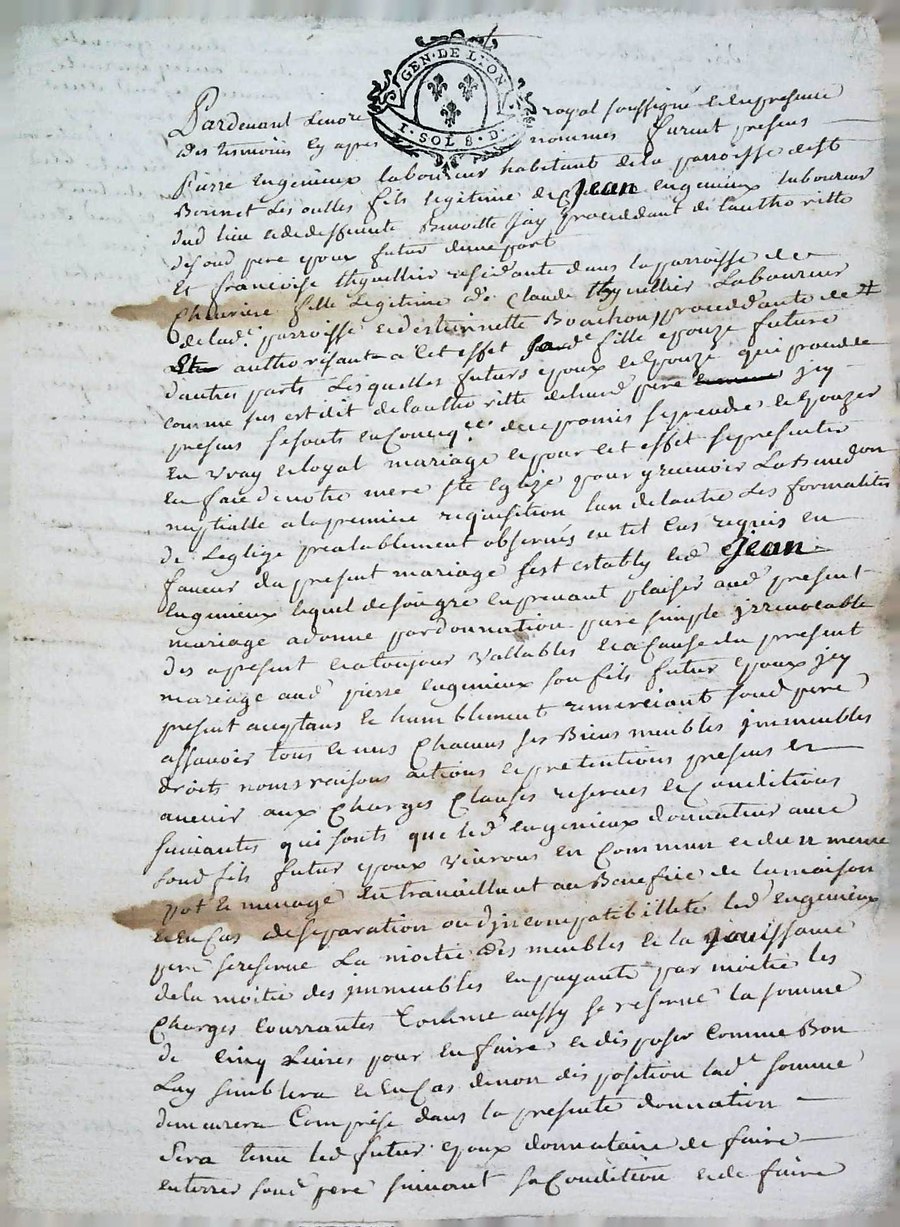 GEN·DE LYON
1·SOL 8·D·
Pardevant le no.re royal soussigné et en presence
des temoins cy apres nommes furent presens
Pierre Engenieux laboureur habitant de la parroisse de St
Bonnet les oulles fils legitime de Jean Engenieux laboureur
dud lieu et de deffunte Benoitte Jay proceddant de lauthoritté
desond pere epoux futur dune part
Et francoise thyvellier residante dans la parroisse de
Cheuriere fille legitime de Claude thyvellier Laboureur
de lad.e parroisse et d'estiennette Bouchon proceddante de
authorisante a cet effet sad.e fille epouze future
d'autres parts Lesquelles futurs epoux et Epouze qui procedde
comme sus est dit de lauthoritté deleurd pere jcy
presens se sonts en Conceq.ce de ce promis se prendre et Epouzer
en vray et loyal mariage et pour cet effet se presenter
en face de notre mere ste Eglize pour y recevoir La Benediction
nuptialle a la premiere requisition lun de lautre Les formalités
de Leglize prealablement observés en tel Cas requis en
faveur du present mariage sest estably led Jean
Engenieux lequel de son gre en prenant plaisir aud present
mariage a donne par donnation pure simple jrrevocable
des a present et a toujour vallables et a Cause du present
mariage aud pierre Engenieux son fils futur Epoux jcy
present acceptans et humblement remerciant sond pere
assavoir tous et uns Chacuns ses Biens meubles jmmeubles
droits noms raisons actions et pretentions presens et
avenir aux Charges Clauses reserves et Conditions
suivantes qui sonts que led Engenieux donnateur avec
sond fils futur epoux vivrons en Commun et du meme
pot et menage en travaillent au Benefice de la maison
et En Cas de separation ou d'jncompatibillité led Engenieux
pere se reserve La moitie des meubles et la jouissance
de la moitie des jmmeubles en payante par moitie les
Charges Courrantes Comme aussy se reserve la somme
de Cinq Livres pour en faire et disposer Comme Bon
Luy semblera et En Cas de non disposition lad.e somme
demeurera Comprise dans la presente donnation
Sera tenu led futur epoux donnataire de faire
enterrer sond pere suivant sa Condition et de faire